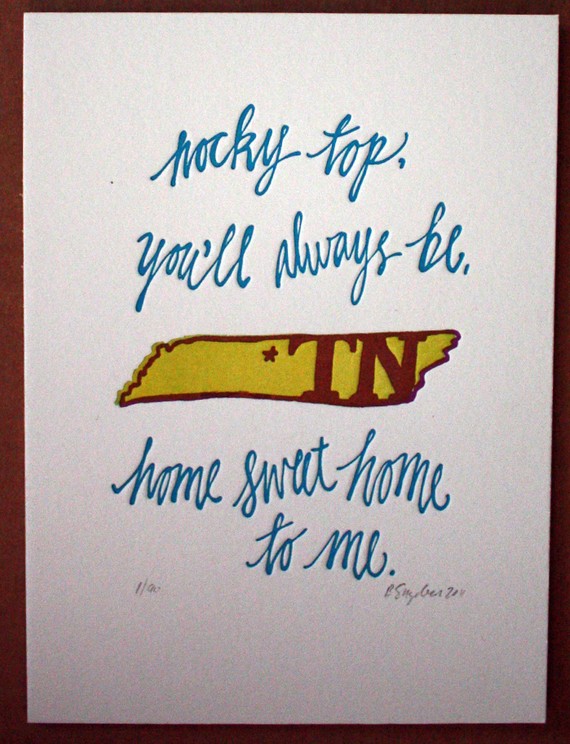 rocky top,
you'll always be,
TN
home sweet home
to me.